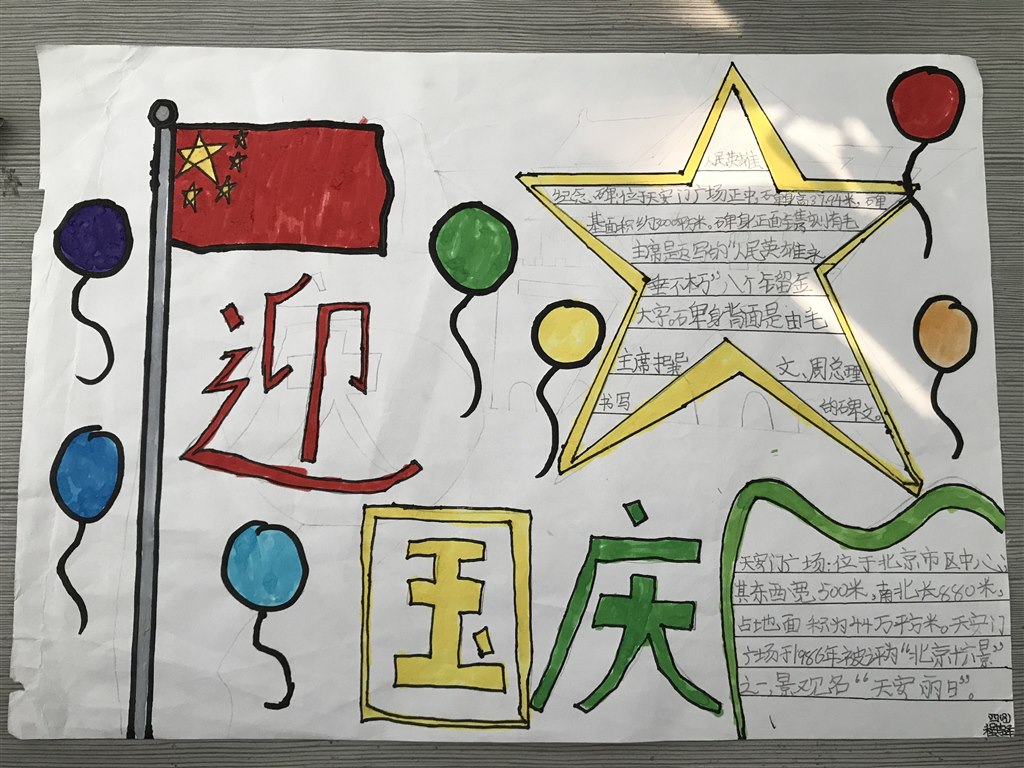 迎
国庆
人民英雄
纪念碑:位于天安门广场正中,碑高37.94米,碑
基面积约3000平方米。碑身正面
主席 写的“人民英雄永
垂不朽”八个
大字。碑身背面是由毛
主席 文、周总理
书写 的碑文。
天安门广场:位于北京市区中心,
其东西宽500米,南北长880米,
占地面积为44万平方米。天安门
广场于1986年被评为“北京十六景”
之一,景观名“天安丽日”。